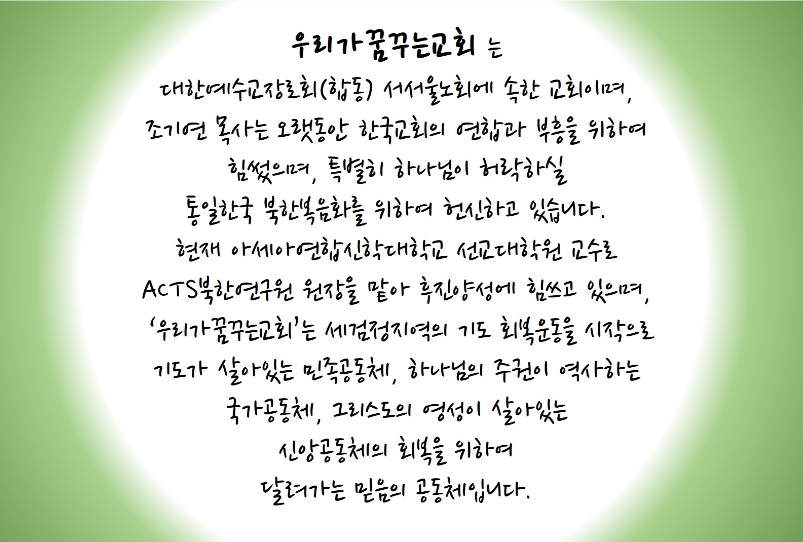 우리가꿈꾸는교회 는
대한예수교장로회(합동) 서서울노회에 속한 교회이며,
조기연 목사는 오랫동안 한국교회의 연합과 부흥을 위하여
힘썼으며, 특별히 하나님이 허락하실
통일한국 북한복음화를 위하여 헌신하고 있습니다.
현재 아세아연합신학대학교 선교대학원 교수로
ACTS북한연구원 원장을 맡아 후진양성에 힘쓰고 있으며,
‘우리가꿈꾸는교회’는 세검정지역의 기도 회복운동을 시작으로
기도가 살아있는 민족공동체, 하나님의 주권이 역사하는
국가공동체, 그리스도의 영성이 살아있는
신앙공동체의 회복을 위하여
달려가는 믿음의 공동체입니다.